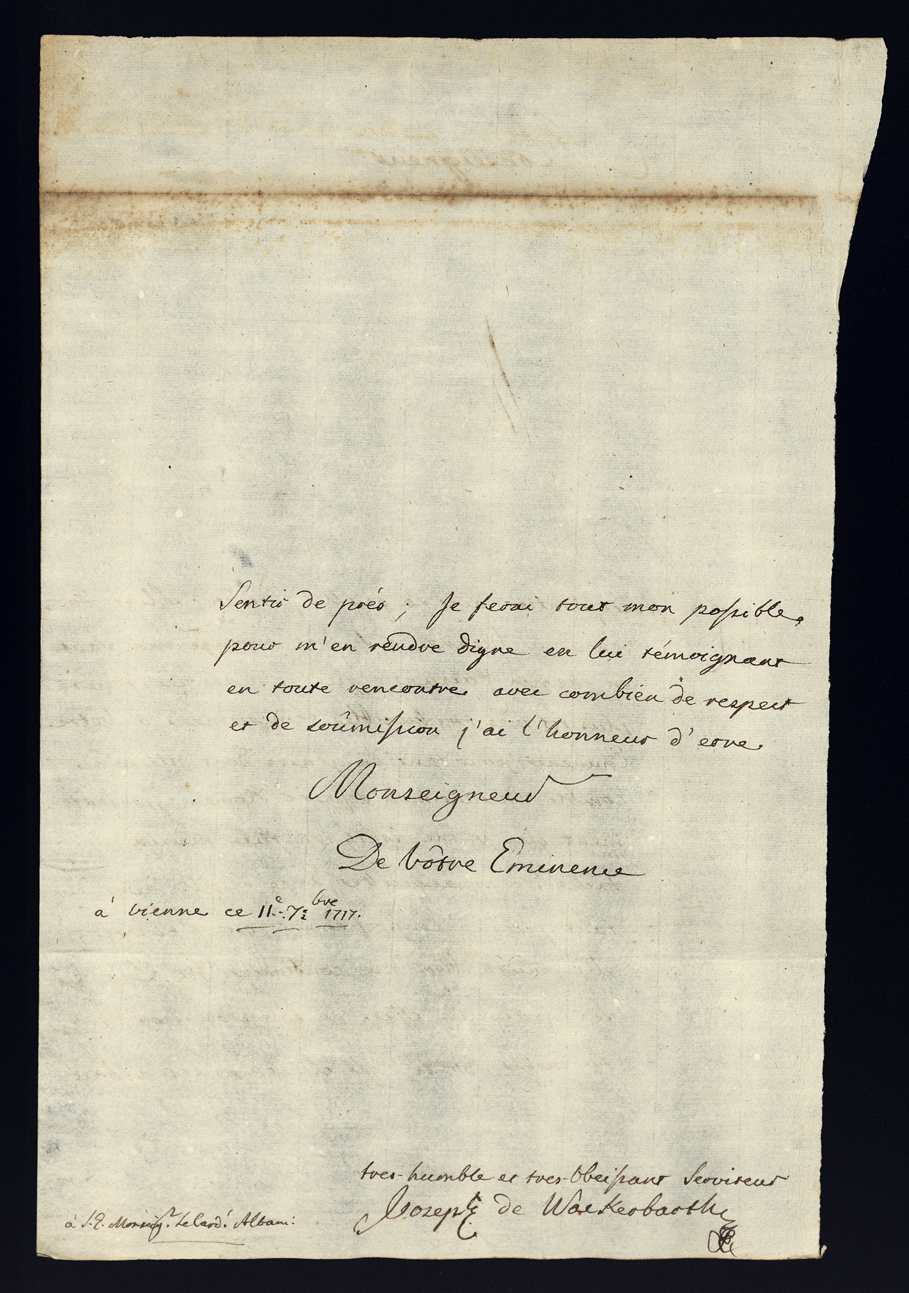 Sentir de près; Je ferai tout mon possible,
pour m'en rendre digne en lui témoignant
en toute rencontre avec combien de respect
et de soûmission j'ai l'honneur d'etre
Monseigneur
De vôtre Eminence
à vienne ce 11e 7bre 1717.
tres-humble et tres-Obeissant Serviteur
Joseph de Wackerbarth
à S.E. Monsigr. Le Card. Albani: